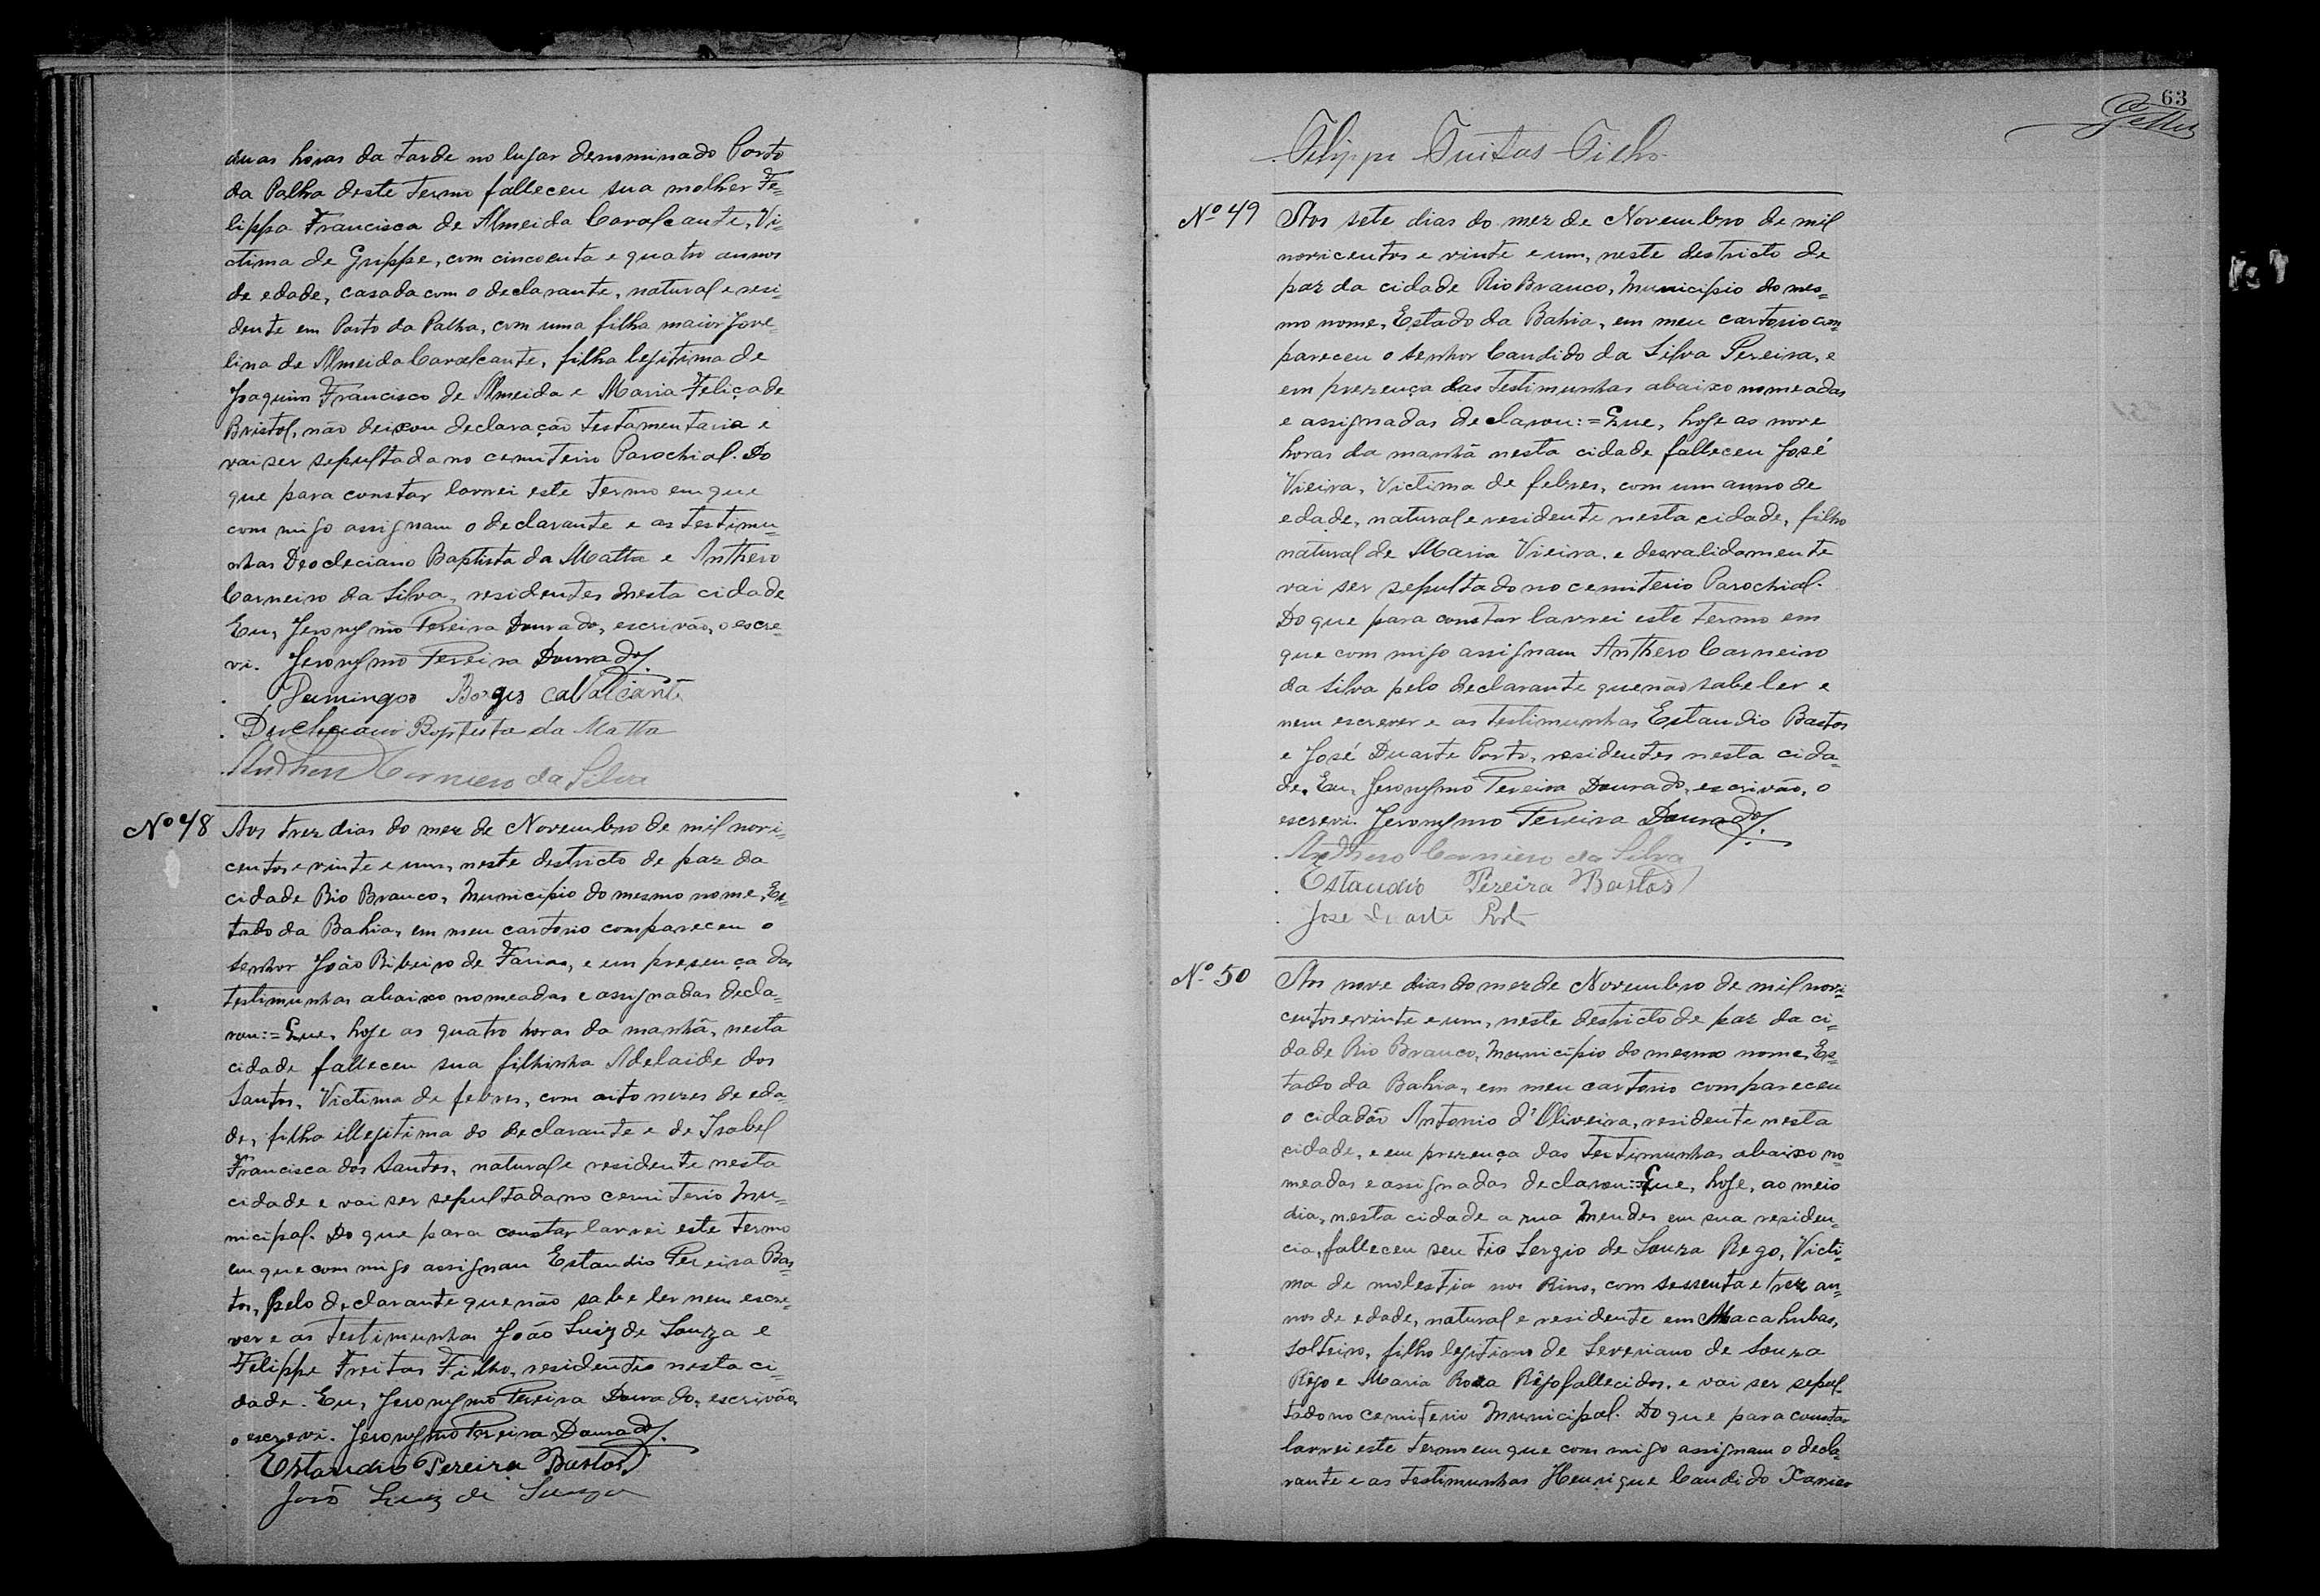 duas horas da tarde no lugar denominado Porto
da Palha deste termo falleceu sua molher Fe=
lippa Francisca de Almeida Cavalcante, Vi=
ctima de Grippe, com cincoenta e quatro annos
de edade, casada com o declarante, natural e resi=
dente em Porto da Palha, com uma filha maior Jove=
lina de Almeida Cavalcante, filha legitima de
Joaquim Francisco de Almeida e Maria Feliça de
Bristol, não deixou declaração testamentaria e
vai ser sepultada no cemiterio Parochial. Do
que para constar lavrei este termo em que
com migo assignam o declarante e as testimu=
nhas Deocleciano Baptista da Matta e Anthero
Carneiro da Silva, residentes nesta cidade
Eu, Jeronymo Pereira Dourado, escrivão, o escre=
vi. Jeronymo Pereira Dourado.
Domingos Borges Cavalcante
Deocleciano Baptista da Matta
Anthero Carneiro da Silva
Nº 48 Aos trez dias do mez de Novembro de mil novi=
centos e vinte e um, neste destricto de paz da
cidade Rio Branco, Municipio do mesmo nome, Es=
tado da Bahia, em meu cartorio compareceu o
senhor João Ribeiro de Farias, e em presença das
testimunhas abaixo nomeadas e assignadas decla=
rou:= Que, hoje as quatro horas da manhã, nesta
cidade falleceu sua filhinha Adelaide dos
Santos, Victima de febres, com oito mezes de eda=
de, filha illegitima do declarante e de Isabel
Francisca dos Santos, natural e residente nesta
cidade e vai ser sepultada no cemiterio Mu=
nicipal. Do que para constar lavrei este termo
em que com migo assignam Estaudio Pereira Bas=
tos, pelo declarante que não sabe ler nem escre=
ver e as testimunhas João Luiz de Souza e
Felippe Freitas Filho, residentes nesta ci=
dade. Eu, Jeronymo Pereira Dourado, escrivão,
o escrevi. Jeronymo Pereira Dourado.
Estaudio Pereira Bastos
João Luiz de Souza
63
Felippe Freitas Filho
Nº 49 Aos sete dias do mez de Novembro de mil
novicentos e vinte e um, neste destricto de
paz da cidade Rio Branco, Municipio do mes=
mo nome, Estado da Bahia, em meu cartorio com=
pareceu o senhor Candido da Silva Pereira, e
em prezença das testimunhas abaixo nomeadas
e assignadas declarou:= Que, hoje as nove
horas da manhã nesta cidade falleceu José
Vieira, Victima de febres, com um anno de
edade, natural e residente nesta cidade, filho
natural de Maria Vieira, e desvalidamente
vai ser sepultado no cemiterio Parochial.
Do que para constar lavrei este termo em
que com migo assignam Anthero Carneiro
da Silva pelo declarante que não sabe ler e
nem escrever e as testimunhas Estaudio Bastos
e José Duarte Porto, residentes nesta cida=
de. Eu, Jeronymo Pereira Dourado, escrivão, o
escrevi. Jeronymo Pereira Dourado.
Anthero Carneiro da Silva
Estaudio Pereira Bastos
Jose Duarte Porto
Nº 50 Aos nove dias do mez de Novembro de mil novi=
centos e vinte e um, neste destricto de paz da ci=
dade Rio Branco, Municipio do mesmo nome, Es=
tado da Bahia, em meu cartorio compareceu
o cidadão Antonio d'Oliveira, residente nesta
cidade, e em prezença das testimunhas abaixo no=
meadas e assignadas declarou:= Que, hoje, ao meio
dia, nesta cidade a rua Mendes em sua residen=
cia, falleceu seu tio Sergio de Souza Rego, Victi=
ma de molestia nos Rins, com sessenta e trez an=
nos de edade, natural e residente em Macahubas,
solteiro, filho legitimo de Severiano de Souza
Rêgo e Maria Roza Rêgo fallecidos, e vai ser sepul=
tado no cemiterio Municipal. Do que para constar
lavrei este termo em que com migo assignam o decla=
rante e as testimunhas Henrique Candido Xavier